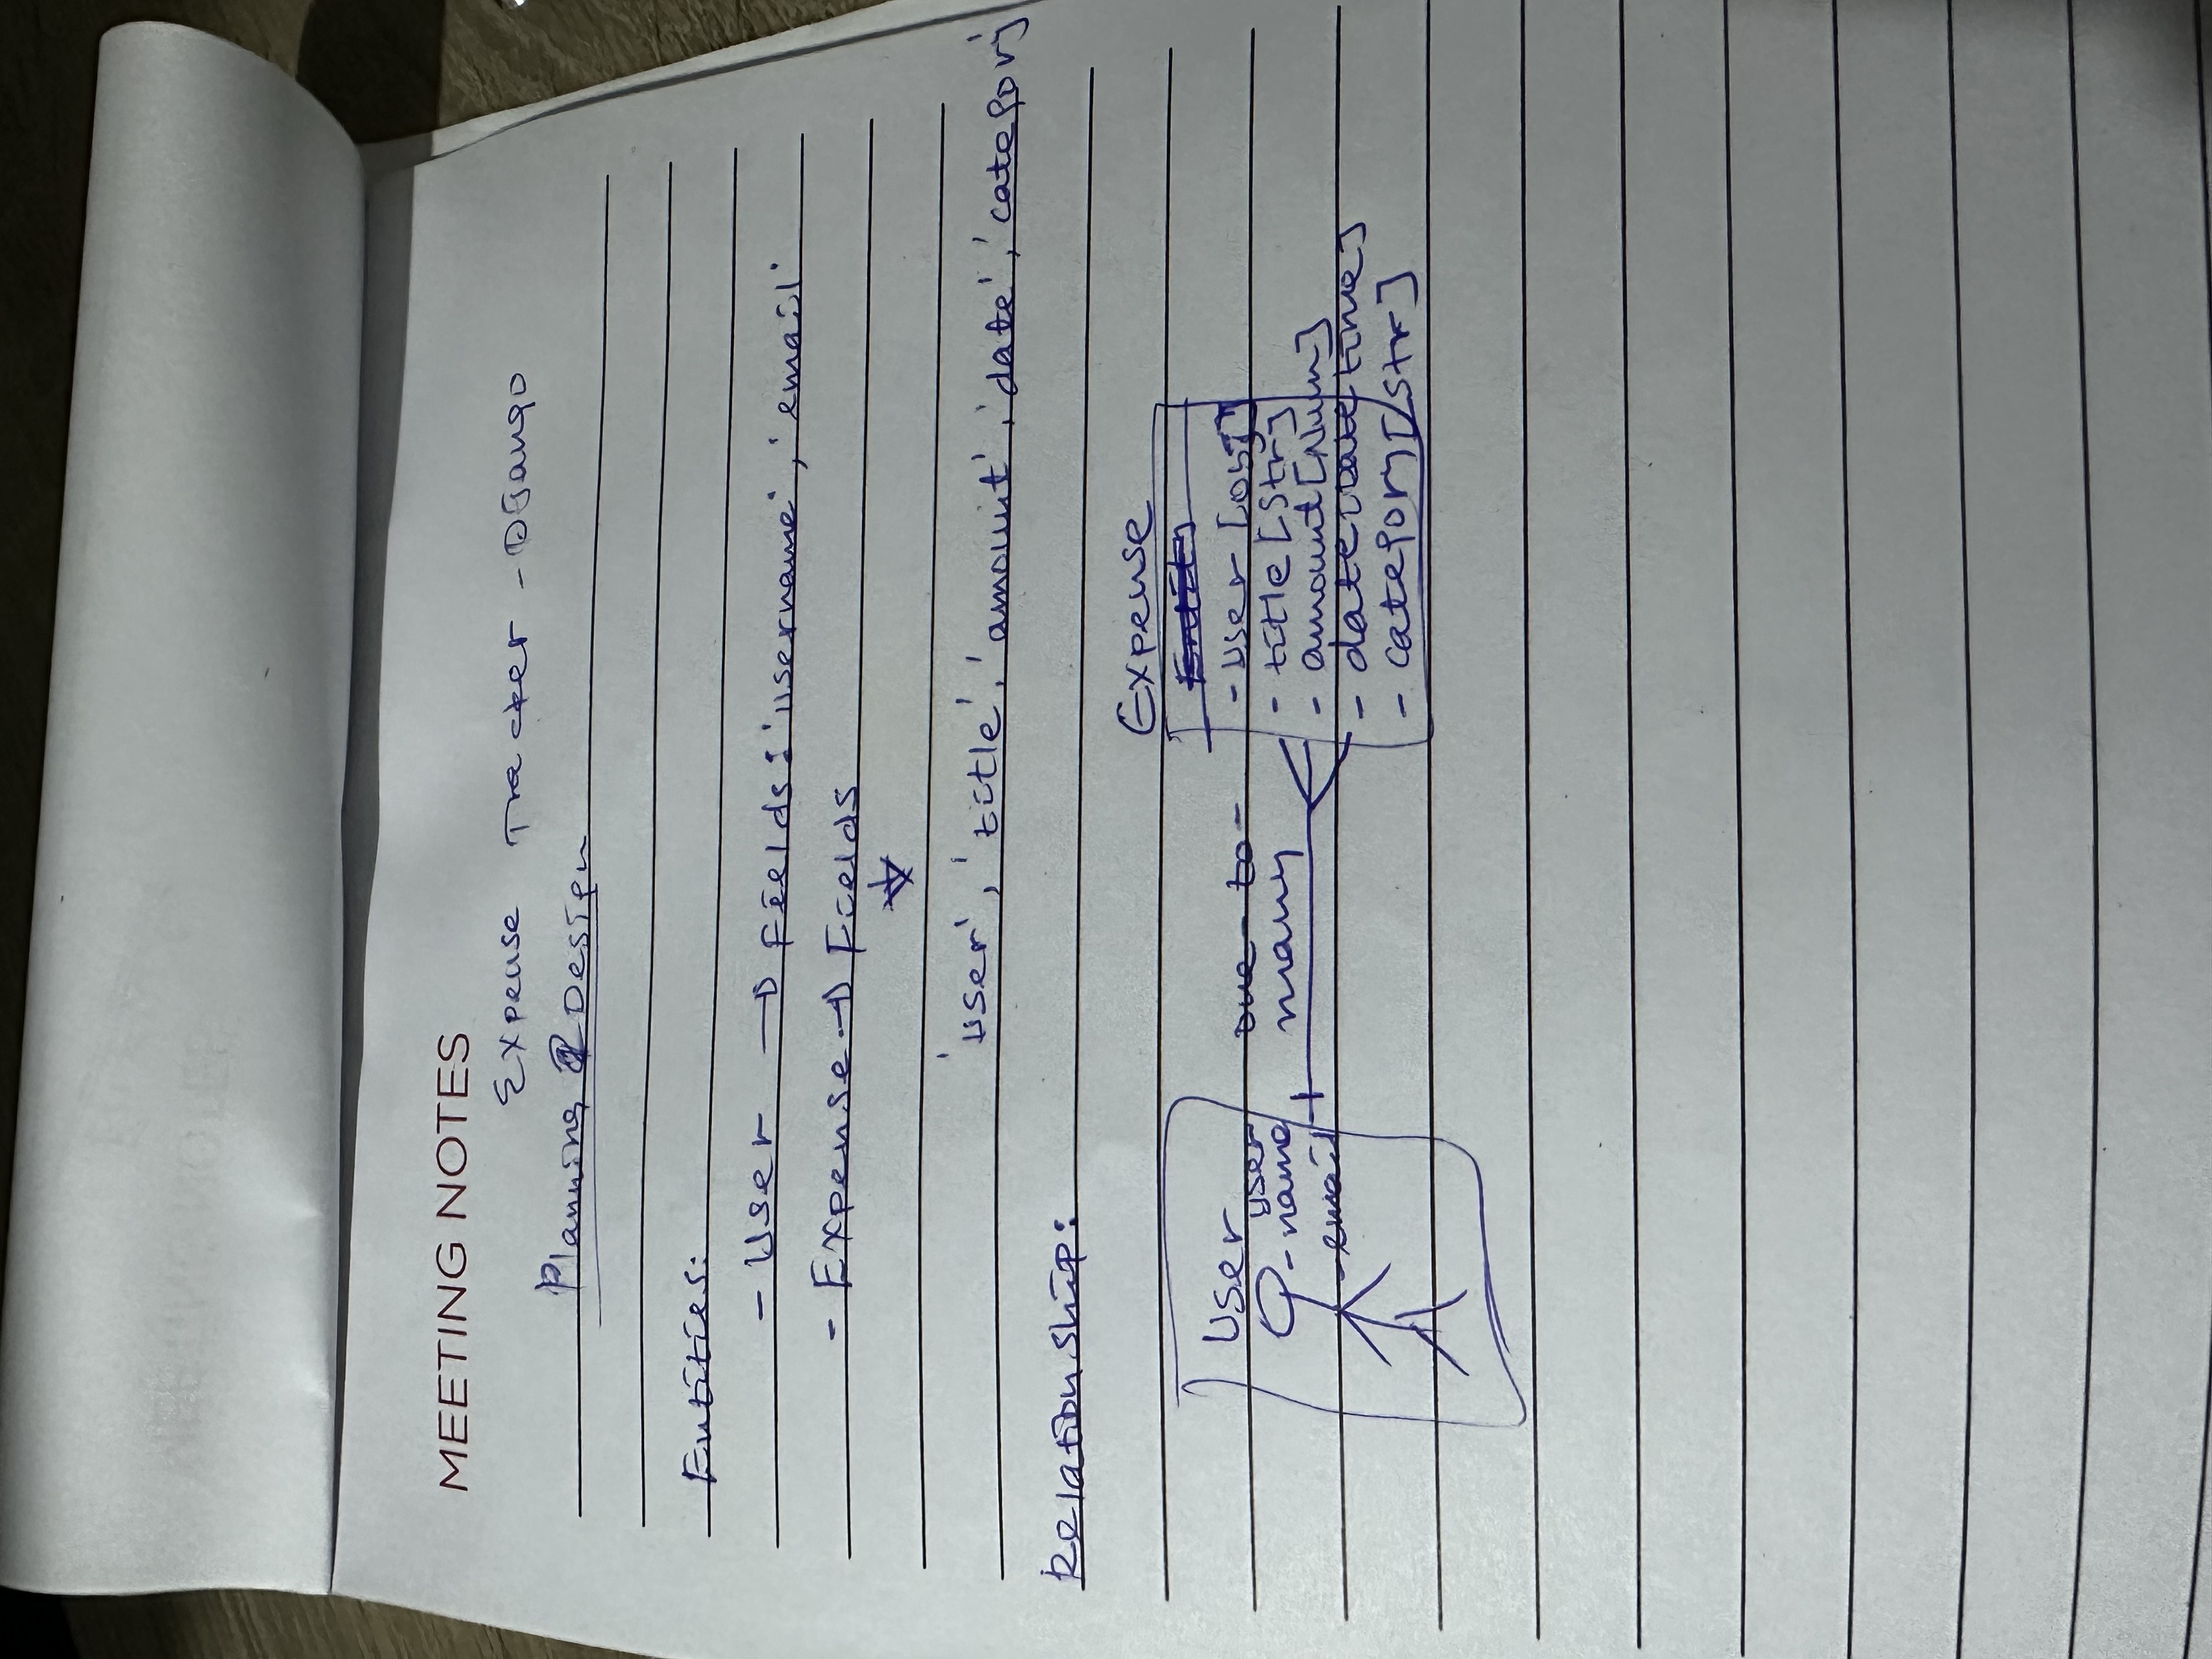 MEETING NOTES
Expense Tracker - Django
Planning & Design
Entities:
- User → Fields: 'username', 'email'
- Expense → Fields
'user', 'title', 'amount', 'date', 'category
Relationship:
Expense
Entity
User
user
- name
- email
one - to -
many
- user [obj]
- title [Str]
- amount [Num]
- date [Date time]
- category [Str]